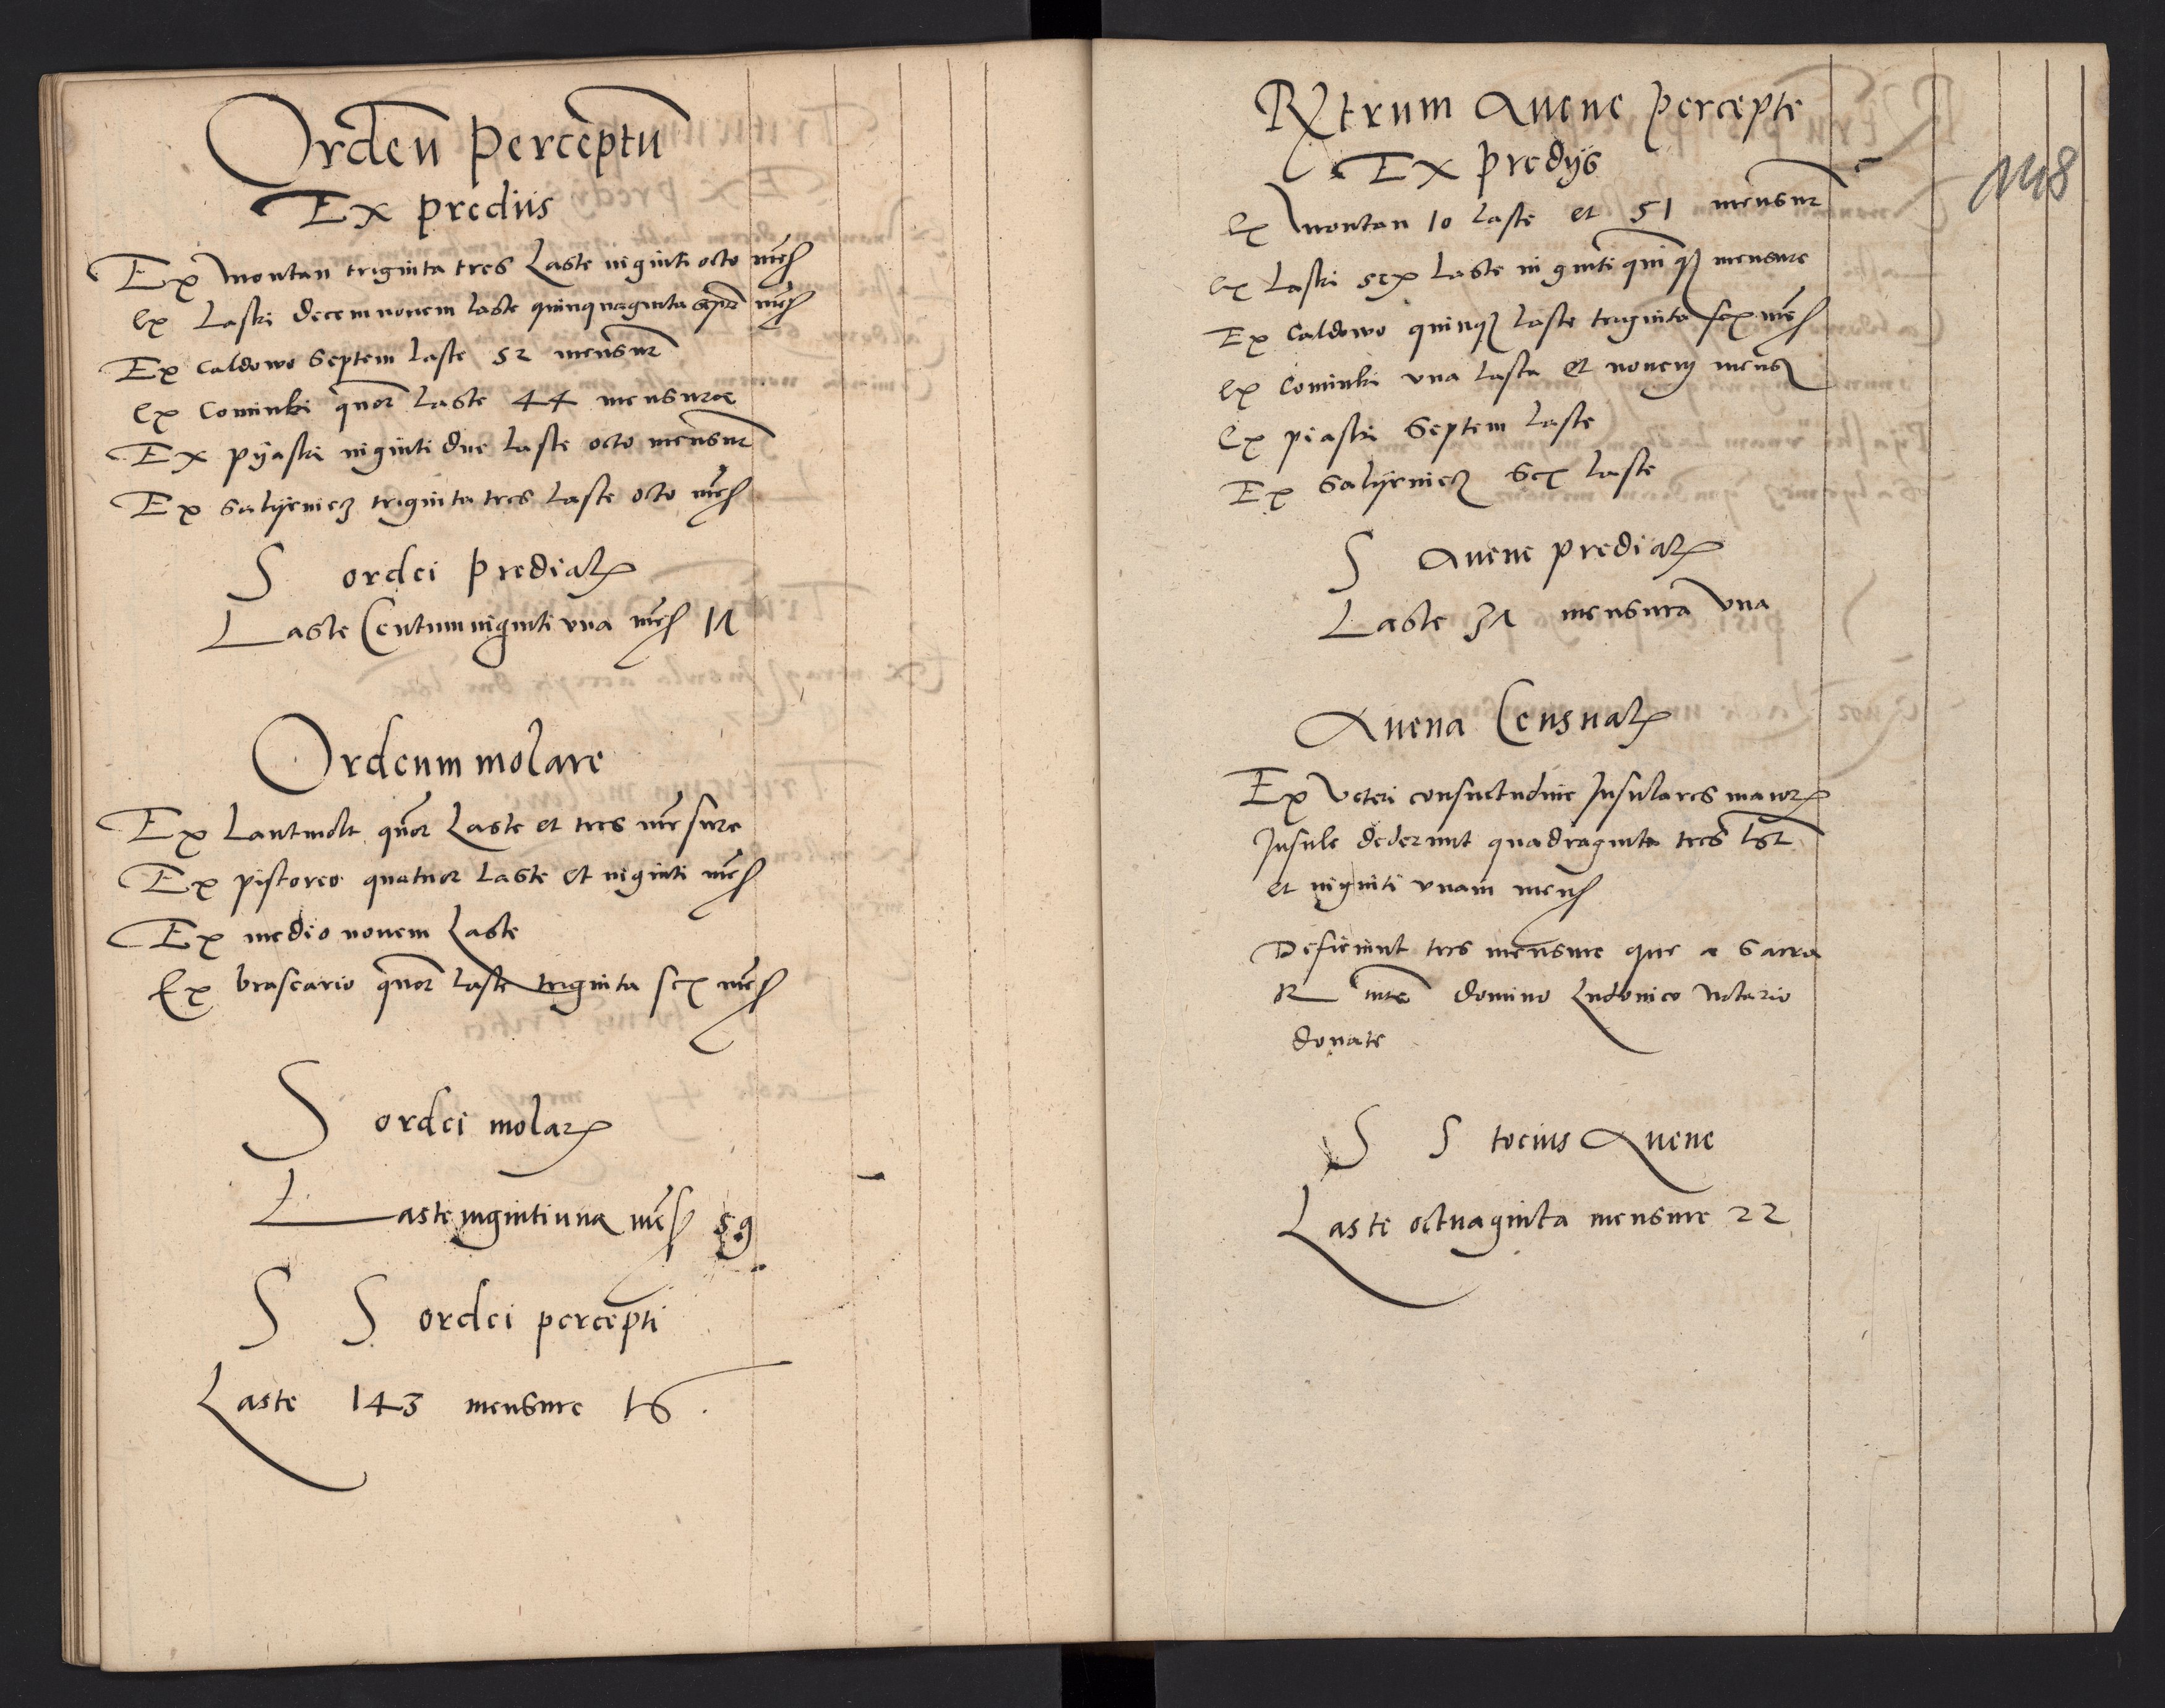 Ordeū Perceptū
Ex prediis
Ex Montan triginta tres Laste viginti octo meñ
Ex Laski decem novem laste quinquaginta septē meñ
Ex Caldowo septem laste 52 mensur
Ex Cominki quor laste 44 mensurae
Ex Pyaski viginti due laste octo mensur
Ex Salyenicz triginta tres laste octo meñ
S ordei Predial
Laste Centum viginti una meñ 17
Ordeum molare
Ex Lantmolt quor Laste et tres mēsure
Ex pistoreo quatuor Laste et viginti meñ
Ex medio novem Laste
Ex braseario quor laste triginta sex meñ
S ordei molar
Laste viginti una meñ 59
S S ordei percepti
Laste 143 mensure 16
Rxtrum Avene percepte
148
Ex predys
Ex Montan 10 laste et 51 mensur
Ex Laski sex laste viginti quinq mensure
Ex Caldowo quinq laste triginta sex meñ
Ex Cominki una lasta et novem mens
Ex piaski Septem laste
Ex Salyenicz Sex laste
S Avene predial
Laste 37 mensura una
Avena Censual
Ex Veteri consuetudine Insulares maior
Insule dederunt quadraginta tres lst
et viginti unam mens
Deficiunt tres mensure que a Sacra
R mte domino Ludovico Notario
donate
S S tocius Avene
Laste octuaginta mensure 22